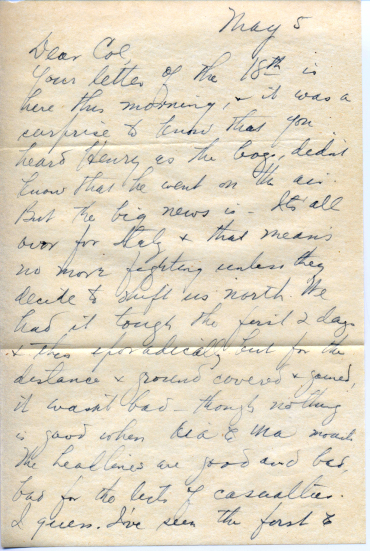 May 5
Dear Col,
Your letter of the 18th is
here this morning, & it was a
surprise to know that you
heard Henry as the boys, didn't
know that he went on the air
But the big news is - It's all
over for Italy & that means
no more fighting unless they
decide to us north. We
had it tough the first 2 days
& this sporadically but for the
distance & ground covered & gained,
it wasn't bad - though nothing
is good when
The headlines are good and bad,
bad for the lists of casualties.
I guess. I've seen the first